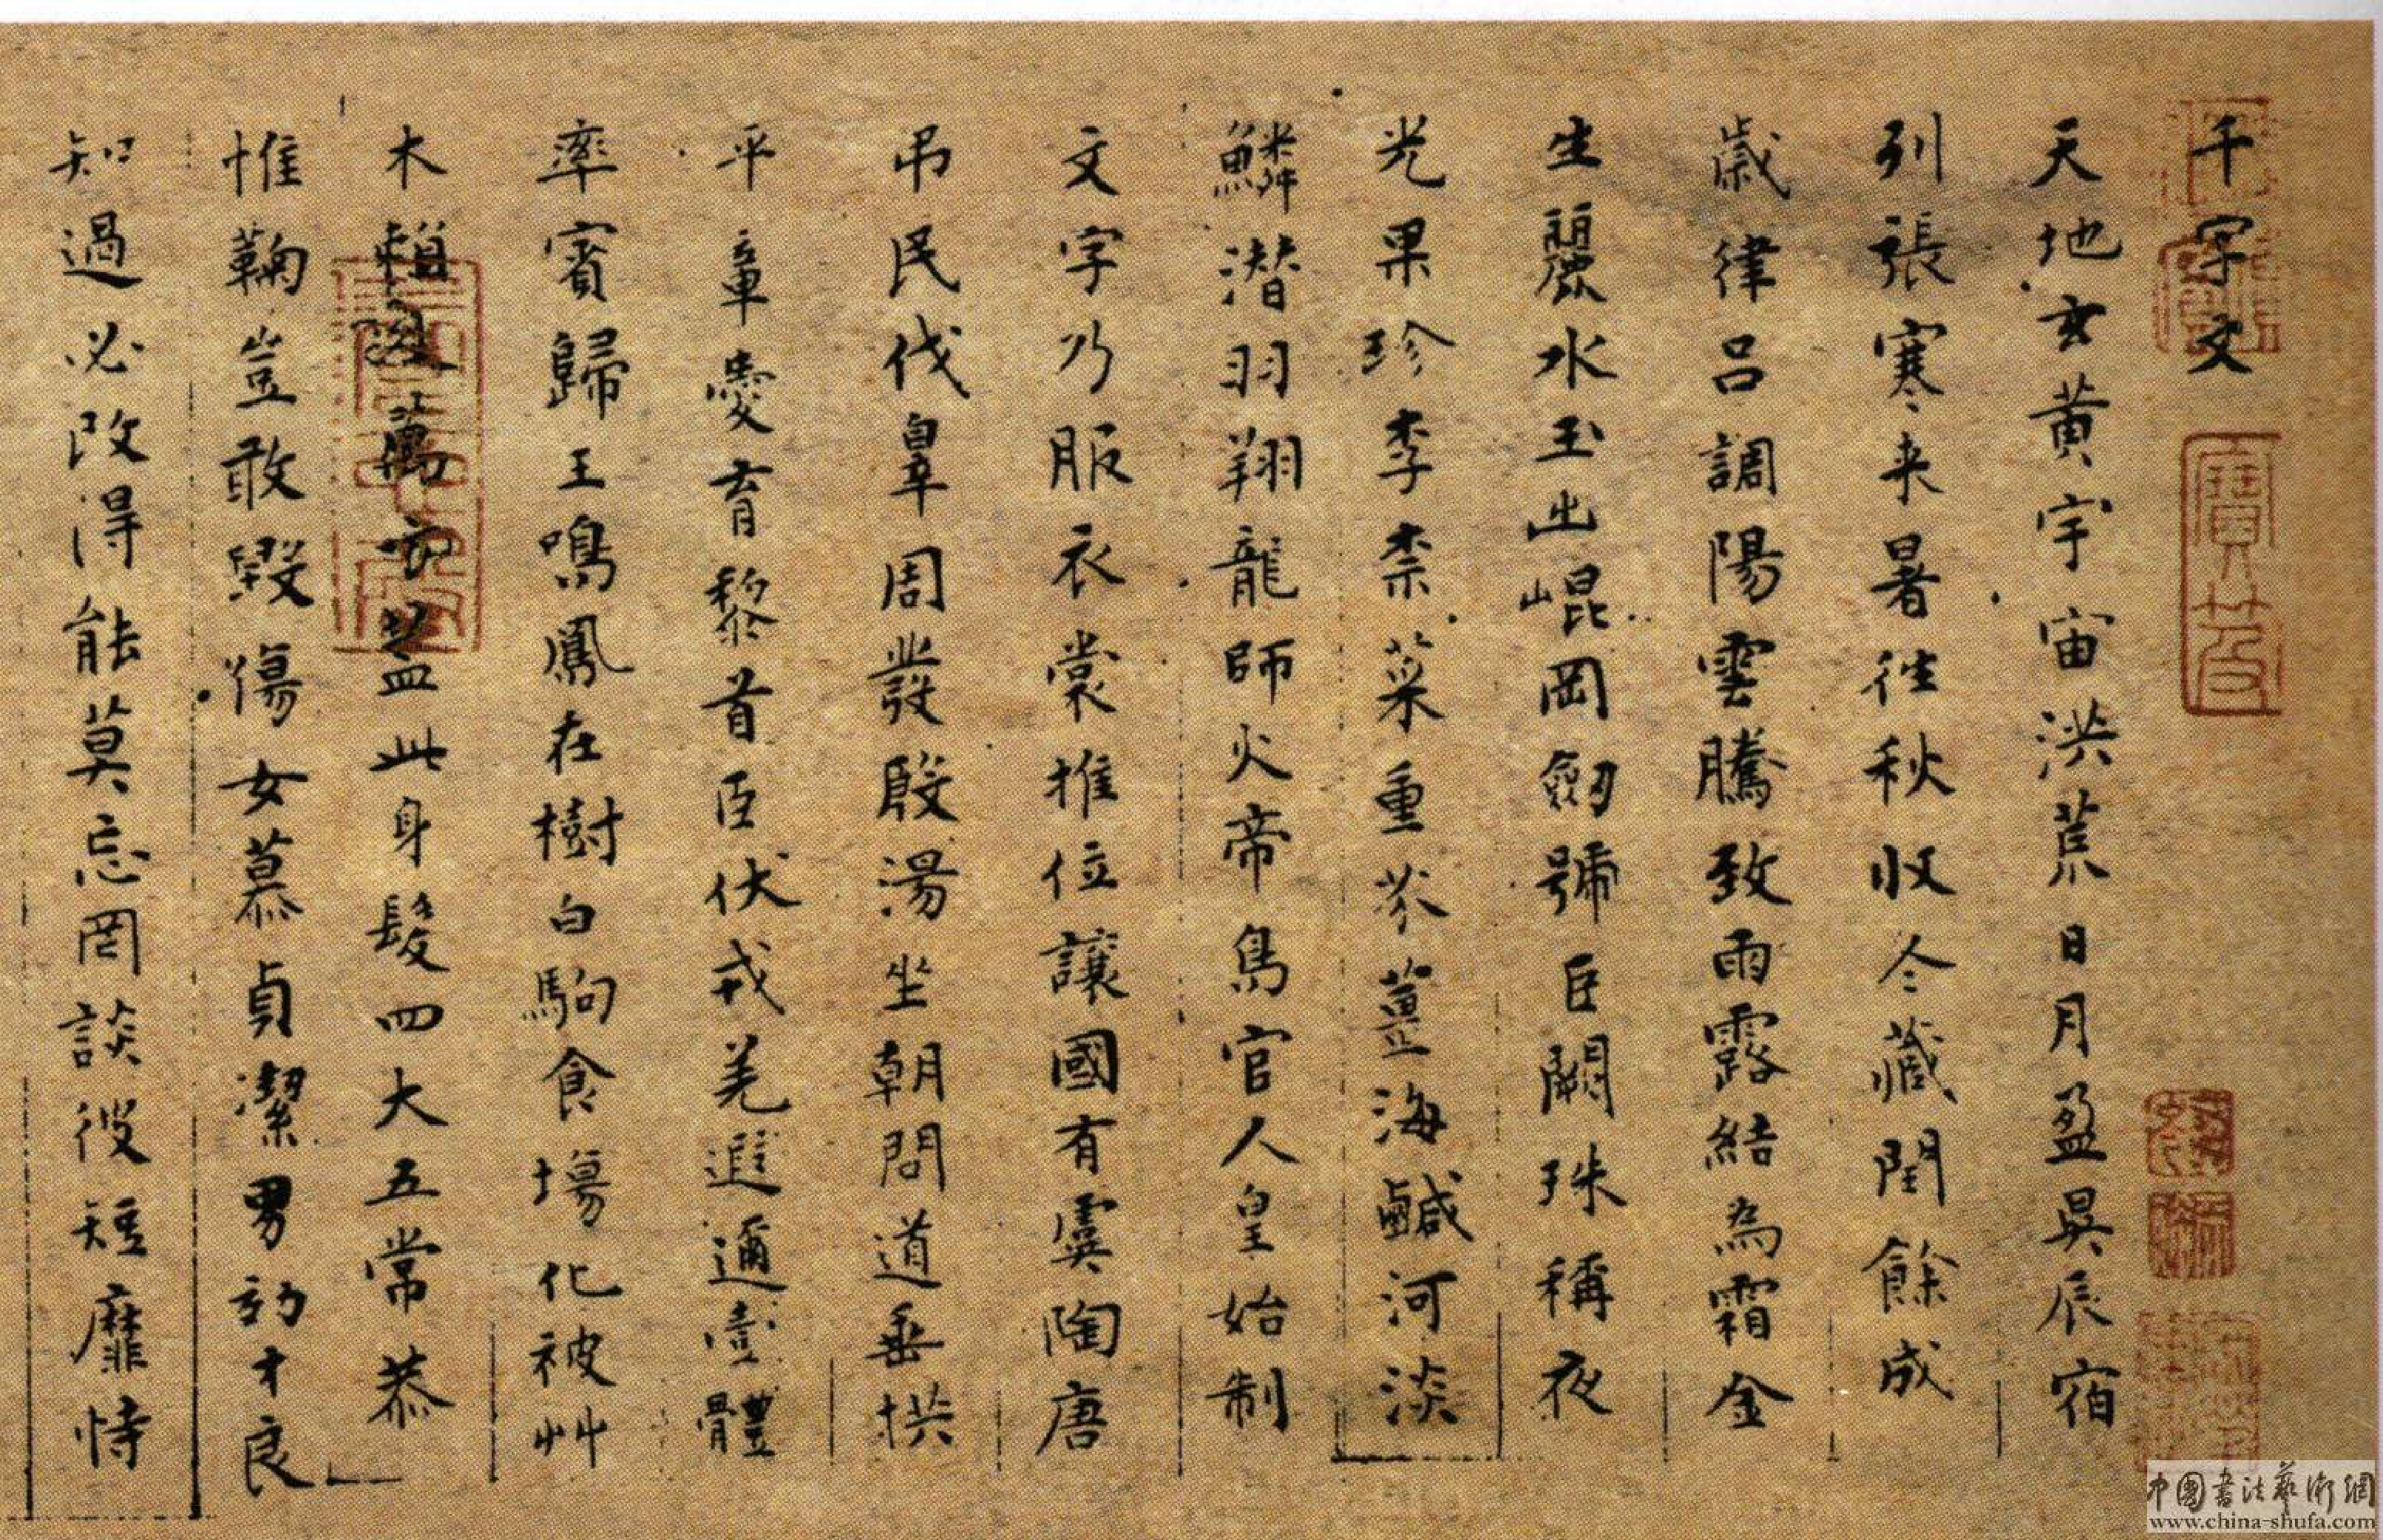 千字文
天地玄黃宇宙洪荒日月盈昃辰宿
列張寒来暑往秋收冬藏閏餘成
歲律呂調陽雲騰致雨露結為霜金
生麗水玉出崐岡劒號巨闕珠稱夜
光果珍李柰菜重芥薑海鹹河淡
鱗潜羽翔龍師火帝鳥官人皇始制
文字乃服衣裳推位讓國有虞陶唐
吊民伐辠周發殷湯坐朝問道垂拱
平章愛育黎首臣伏戎羌遐邇壹體
率賓歸王鳴鳳在樹白駒食場化被艸
木賴及萬方蓋此身髮四大五常恭
惟鞠豈敢毀傷女慕貞潔男効才良
知過必改得能莫忘罔談彼短靡恃
寶笈
中國書法藝術網
www.china-shufa.com